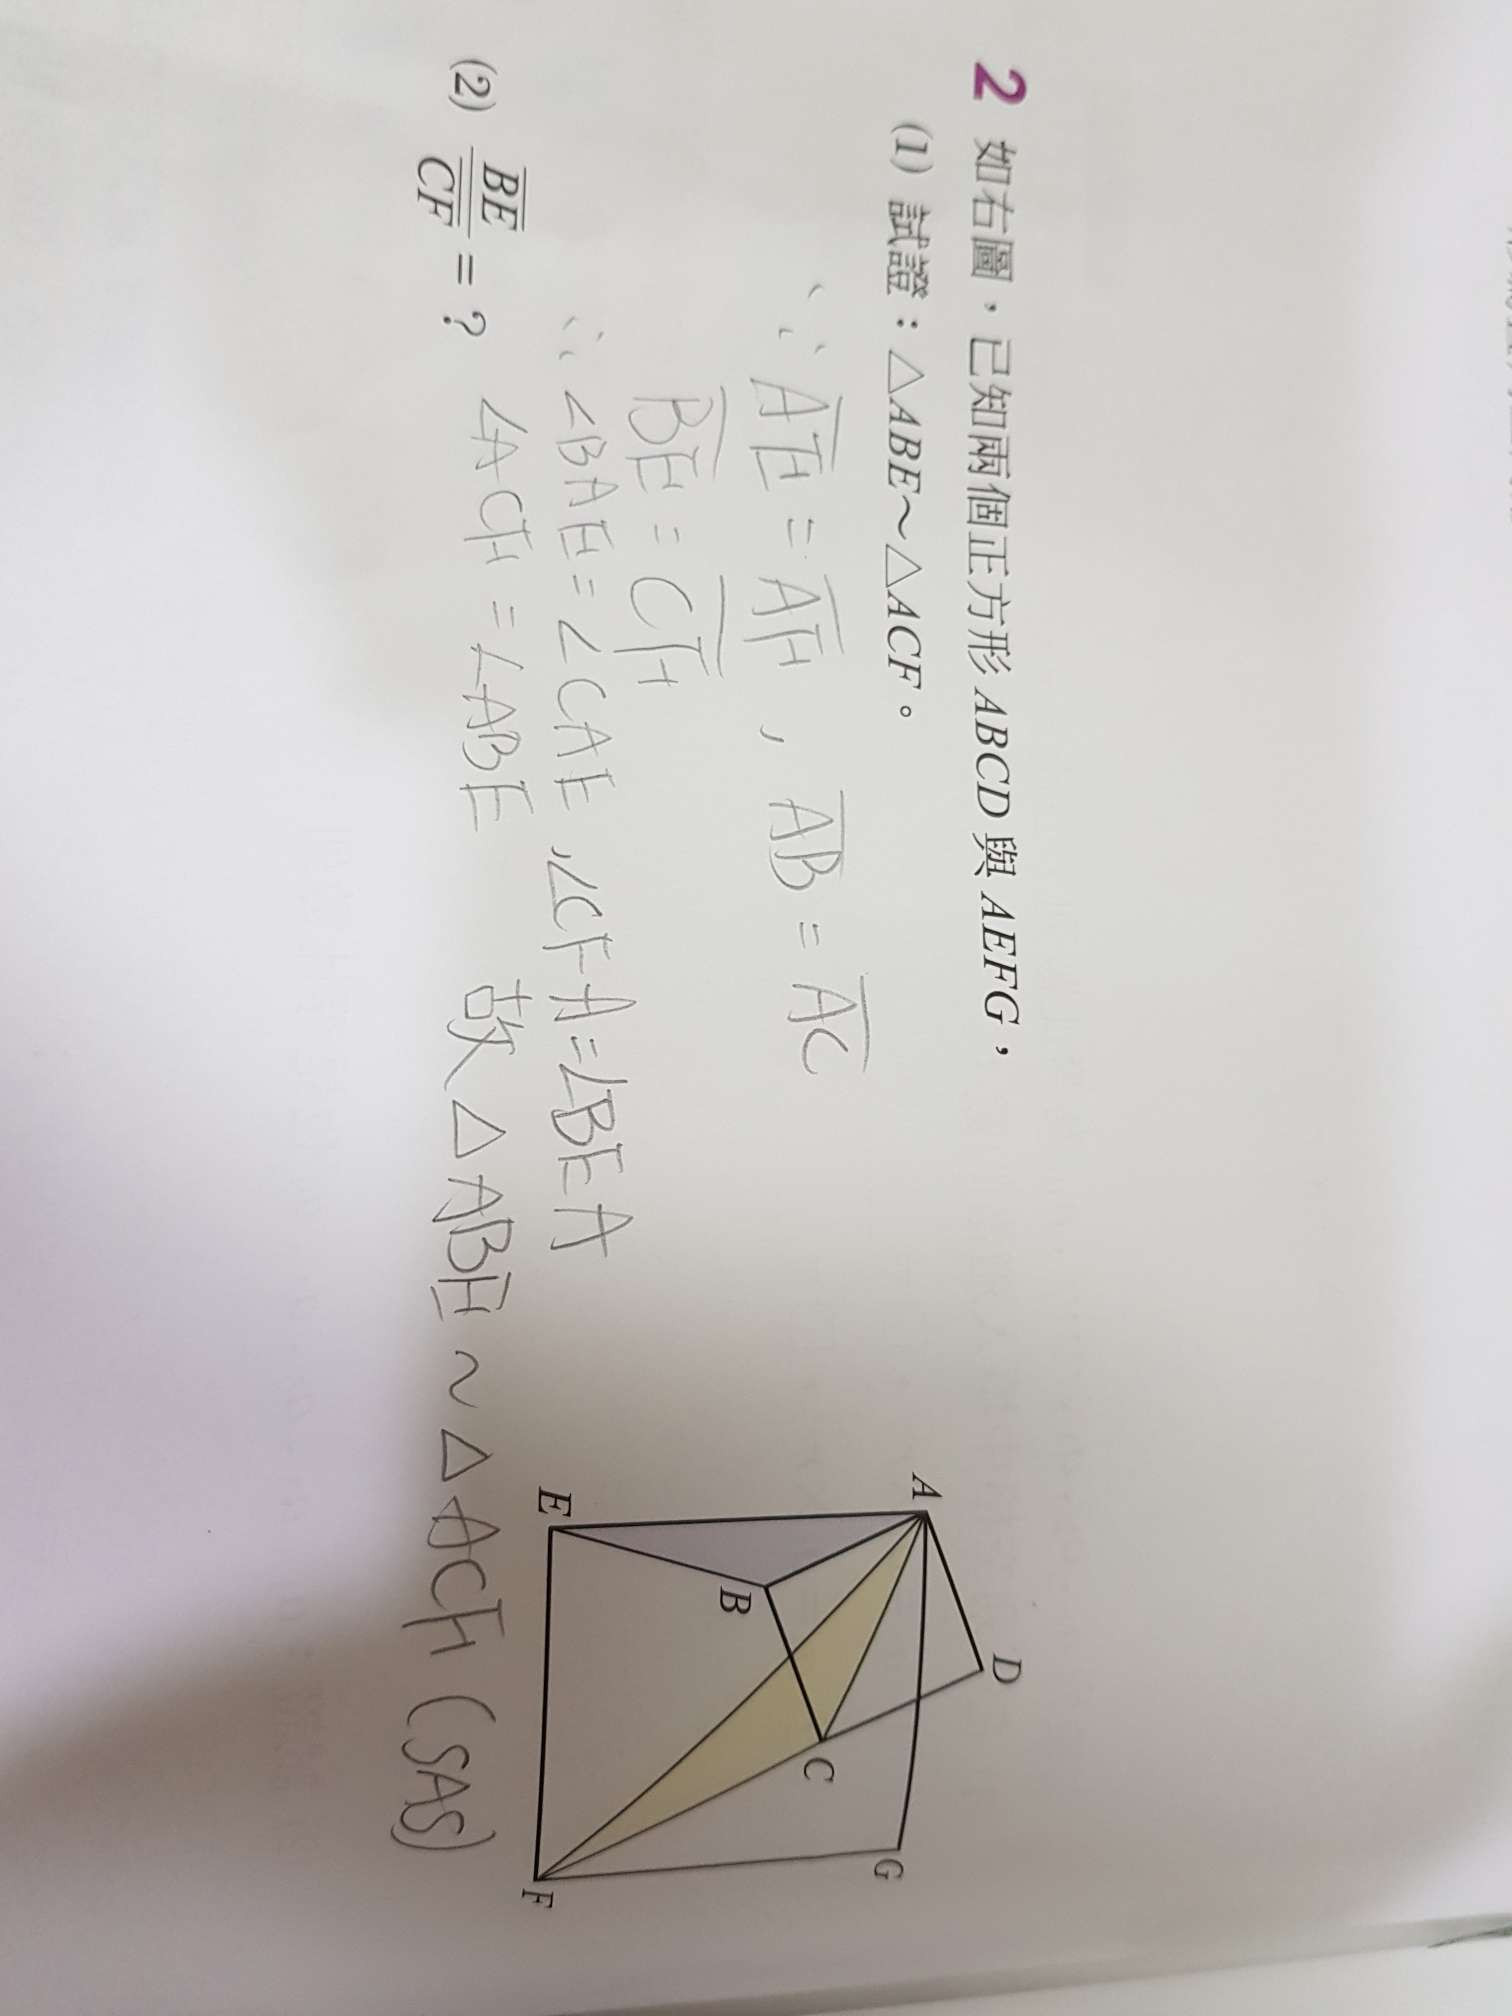 2 如右圖，已知兩個正方形 ABCD 與 AEFG，
(1) 試證：△ABE～△ACF。
∵ AE = AF , AB = AC
BE = CF
∵ ∠BAE = ∠CAE , ∠CFA = ∠BEA
(2) BE/CF = ?
∠ACF = ∠ABE 故 △ABE ~ △ACF (SAS)
A
D
E
B
C
G
F